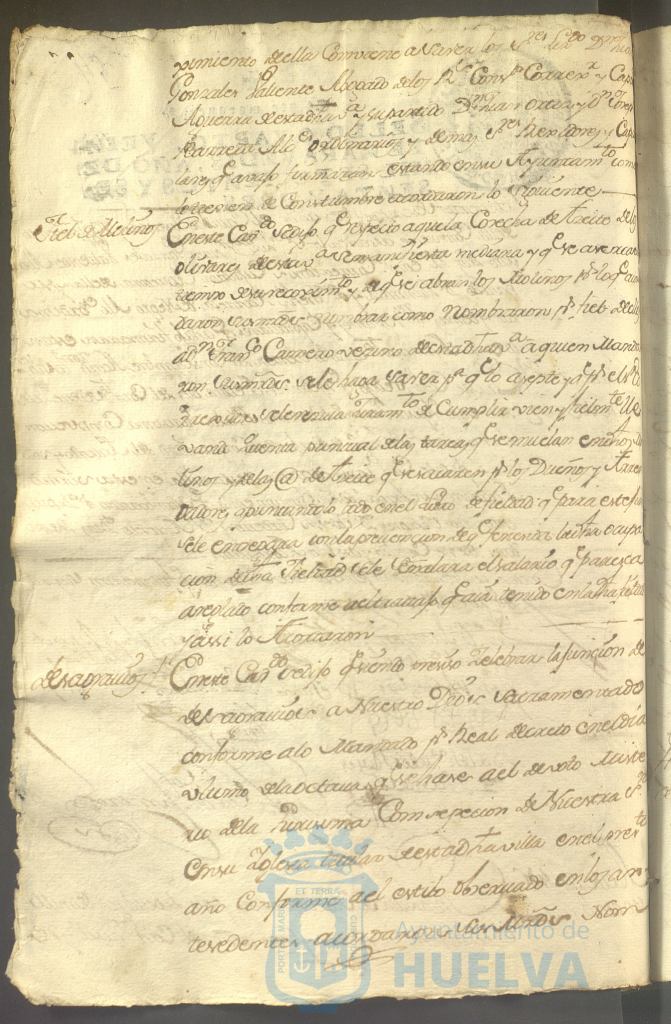 ximiento de ella Conviene a saver los S.res Liz.do D.n
Gonzales Valiente Abogado de los R.s Cons.s Correx.r y Cap.n
Aguerra de esta v.a y su partido D.n
Alc.s ordinarios y demas S.res Rexidores y Cap
lares q avaxo firmaran estando en su Ayuntam.to como
lo tienen de Constumbre acordaron lo siguiente
Fiel de Molinos
En este Cav.do se dixo q respecto a que la Cosecha de Azeite de los
olivares de esta v.a se manifiesta mediana y q se asercava
tiempo de su recoxim.to y a q se abran los Molinos p.r lo q acor
daron sus m.des nombrar como nombraron p.r fiel de ellos
a D.n Fran.co Carrero vezino de esta dha v.a a quien Manda
ron sus m.des se le haga saver p.a q lo asepte y q p.r el
se le resiva Juram.to de Cumplir vien y fielm.te lle
vando quenta puntual de las tareas q se muelan en dhos Mo
linos y de las @ de Azeite q se sacaren p.r los Dueños y Arren
dadores apuntandolo todo en el Libro de fieldad q para este fin
se le entregara con la prevencion de q fenesida la dha ocupa
cion de tal Fieldad se le señalara el salario q paresca
areglado conforme al travaxo q aia tenido en la dha fieldad
y assi lo Acordaron
desagravios
En este Cav.do se dixo q siendo presiso Zelebrar la funcion de
desagravios a Nuestro Dios sacramentado
conforme a lo Mandado p.r Real decreto en el dia
ultimo de la octava q se hase a el devoto Miste
rio de la Purissima Comsepcion de Nuestra S.ra
en su Yglesia titular de esta dha villa en el pres.te
año Conforme a el estilo observado en los an
tesedentes acordaron sus m.des Nom
PORTUS MARIS ET TERRAE CUSTODIA
Ayuntamiento de
HUELVA